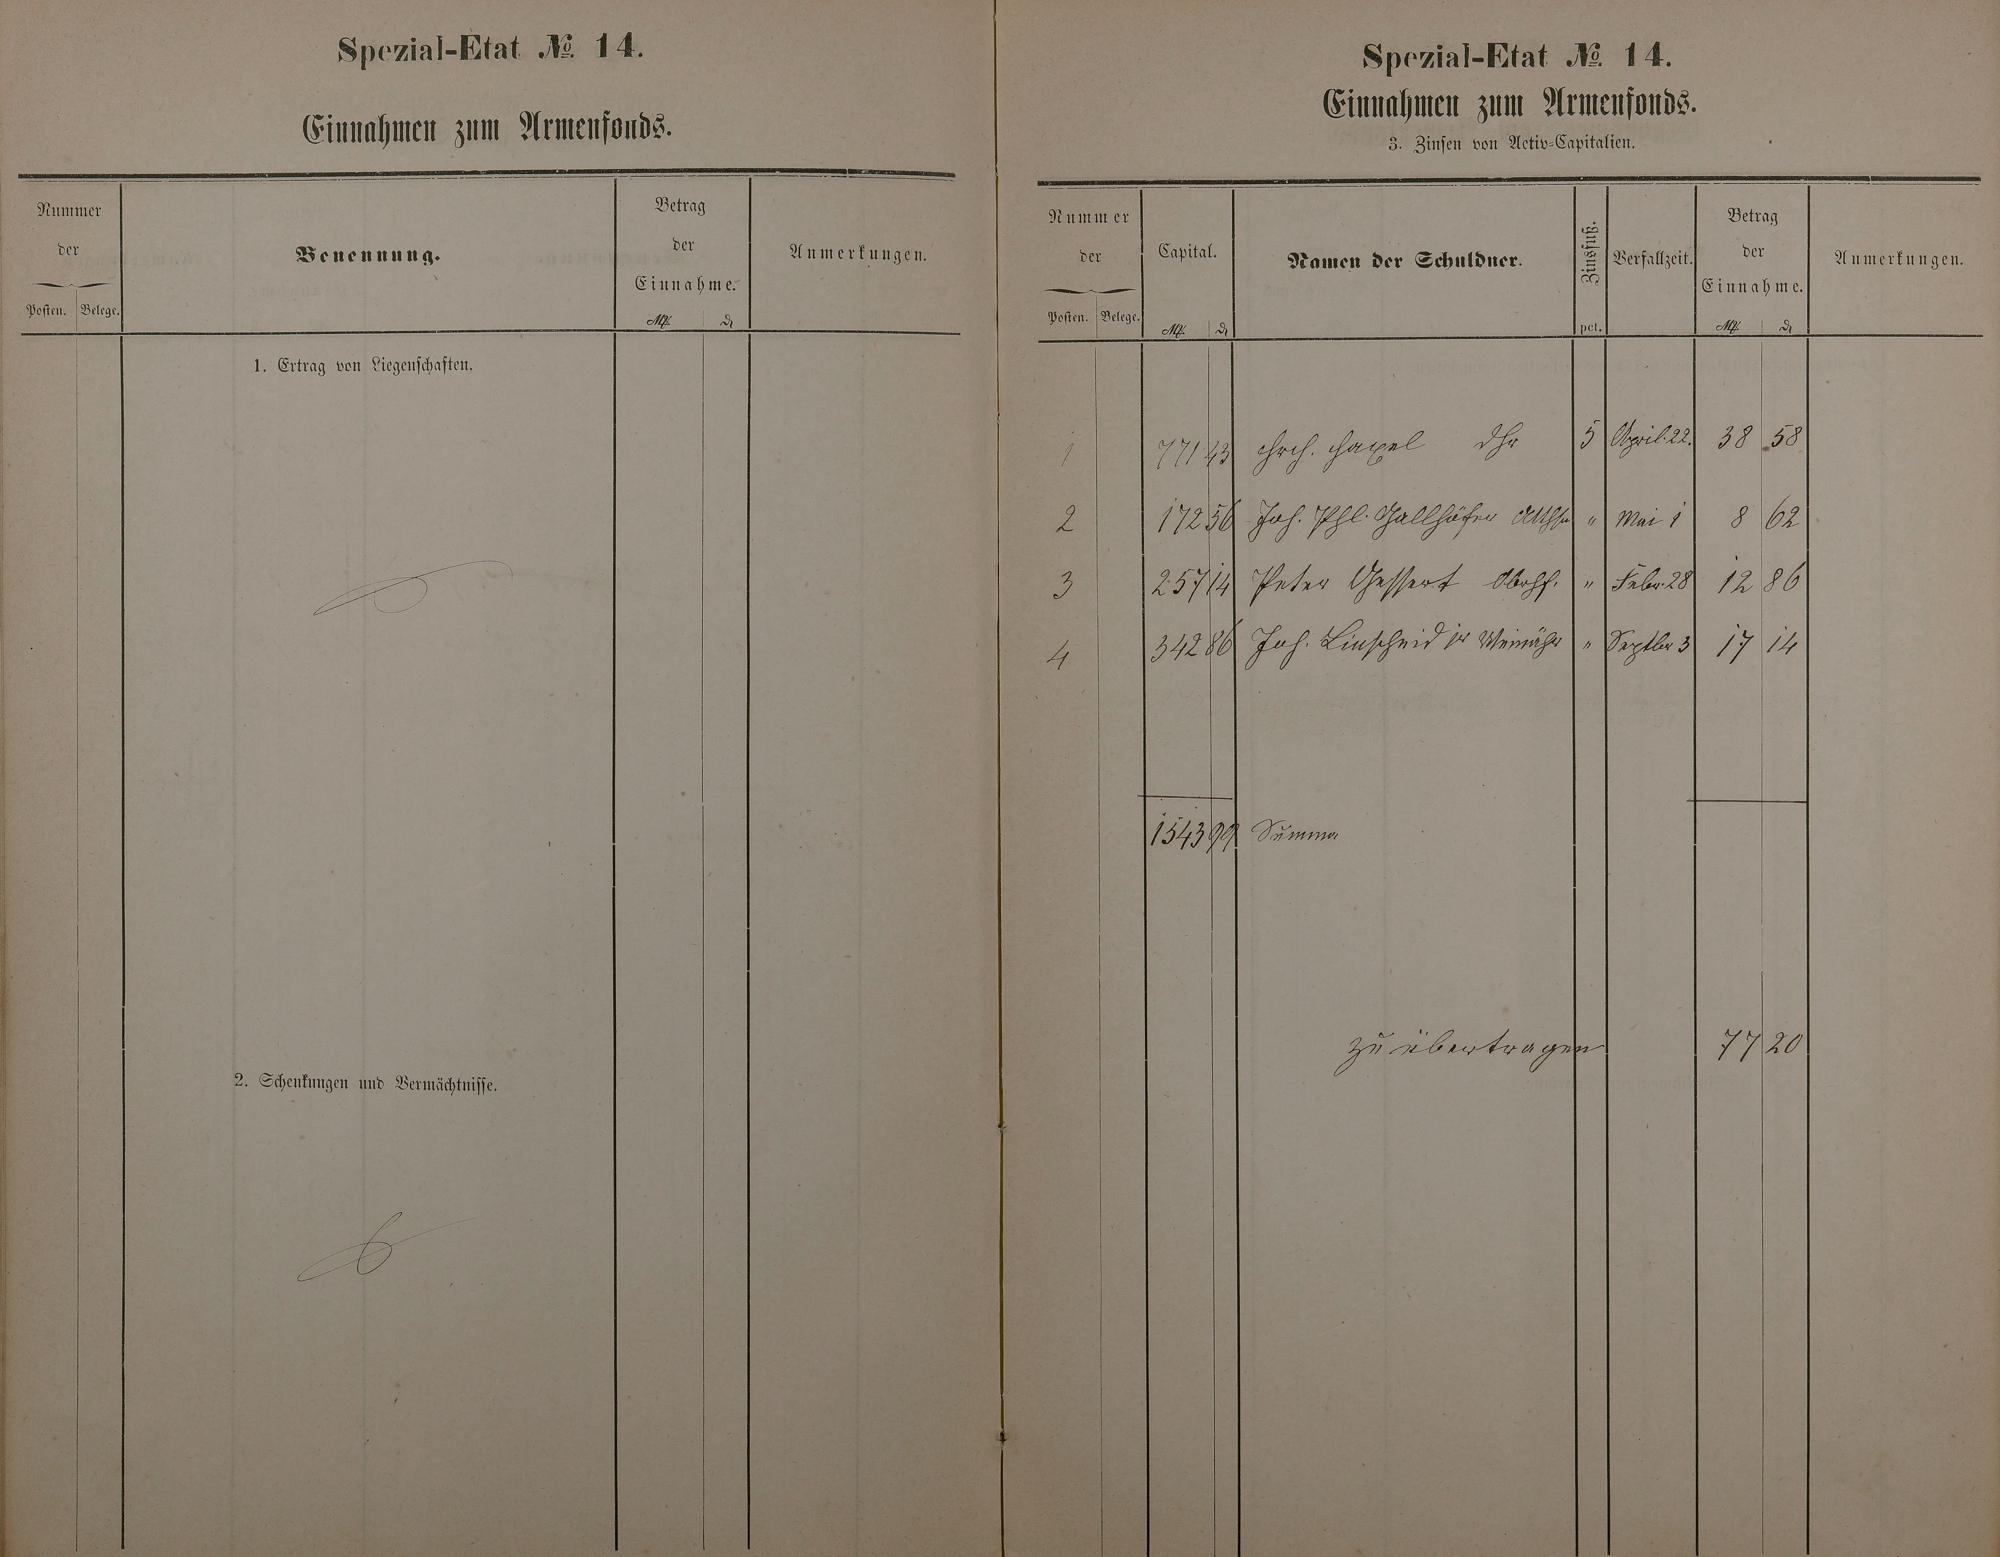 Spezial-Etat № 14.
Einnahmen zum Armenfonds.
Nummer der
Posten. Belege.
Benennung.
Betrag der Einnahme.
M. d.
Anmerkungen.
1. Ertrag von Liegenschaften.
2. Schenkungen und Vermächtnisse.
Spezial-Etat № 14.
Einnahmen zum Armenfonds.
3. Zinsen von Activ-Capitalien.
Nummer der
Posten. Belege.
Capital.
M. d.
Namen der Schuldner.
Zinsfuß.
pct.
Verfallzeit.
Betrag der Einnahme.
M. d.
Anmerkungen.
1 771 43 5 April. 22. 38 58
2 172 56 Joh. Phl. Gallhöfer " Mai 1 8 62
3 257 14 Peter Gessert " Febr. 28 12 86
4 342 86 Joh. Linscheid jr Weinähr " Septbr 3 17 14
1543 99 Summa
zu übertragen 77 20